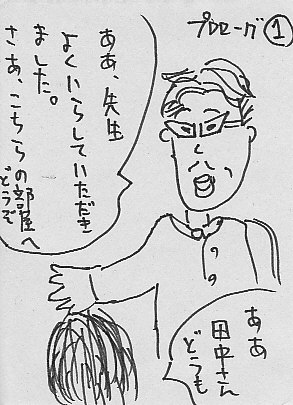 プロローグ①
ああ、先生
よくいらしていただき
ました。
さあ、こちらの部屋へ
どうぞ
ああ
田中さん
どうも